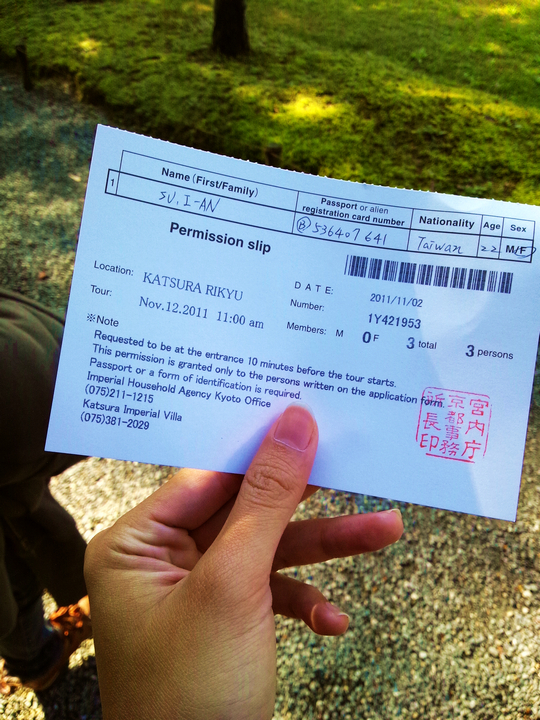 Name (First/Family) Passport or alien registration card number Nationality Age Sex
1 SU, I-AN Ⓑ 536407641 Taiwan 22 M/F
Permission slip
Location: KATSURA RIKYU DATE: 2011/11/02
Tour: Nov.12.2011 11:00 am Number: 1Y421953
Members: M 0 F 3 total 3 persons
※Note
Requested to be at the entrance 10 minutes before the tour starts.
This permission is granted only to the persons written on the application form.
Passport or a form of identification is required.
Imperial Household Agency Kyoto Office
(075)211-1215
Katsura Imperial Villa
(075)381-2029
宮内庁
京都事務
所長印